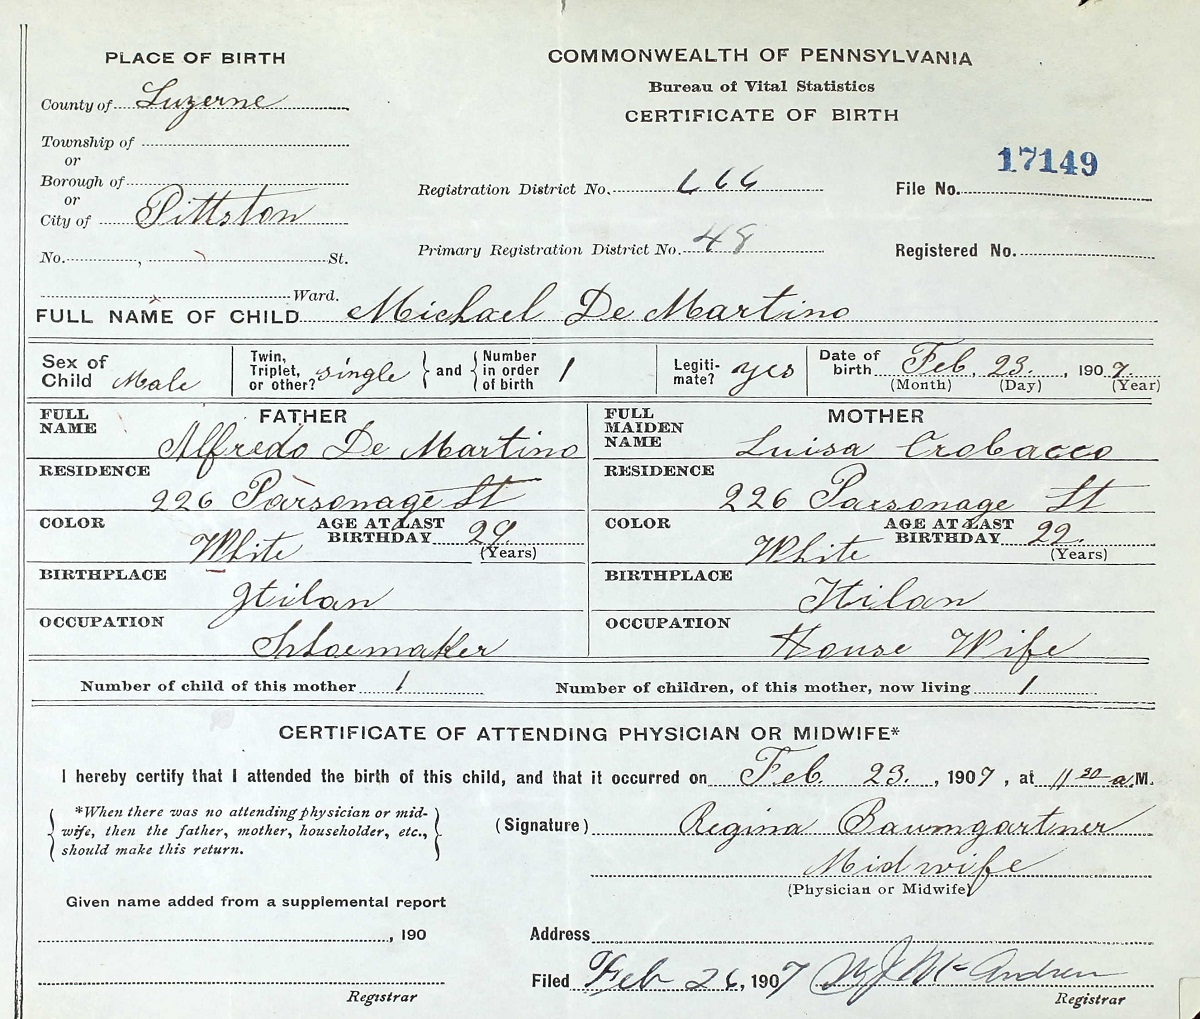 PLACE OF BIRTH
County of Luzerne
Township of
or
Borough of
or
City of Pittston
No. , St.
Ward.
COMMONWEALTH OF PENNSYLVANIA
Bureau of Vital Statistics
CERTIFICATE OF BIRTH
17149
Registration District No. 666 File No.
Primary Registration District No. 48 Registered No.
FULL NAME OF CHILD Michael De Martino
Sex of Child Male Twin, Triplet, or other? single and Number in order of birth 1 Legitimate? yes Date of birth Feb. 23. , 1907.
(Month) (Day) (Year)
FATHER
FULL NAME Alfredo De Martino
RESIDENCE
226 Parsonage St
COLOR White AGE AT LAST BIRTHDAY 29.
(Years)
BIRTHPLACE
Itilan
OCCUPATION
Shloemakker
MOTHER
FULL MAIDEN NAME Luisa Crobacco
RESIDENCE
226 Parsonage St
COLOR White AGE AT LAST BIRTHDAY 22.
(Years)
BIRTHPLACE
Itilan
OCCUPATION
House Wife
Number of child of this mother 1 Number of children, of this mother, now living 1
CERTIFICATE OF ATTENDING PHYSICIAN OR MIDWIFE*
I hereby certify that I attended the birth of this child, and that it occurred on Feb. 23. , 1907 , at 11 30 a.M.
*When there was no attending physician or mid-
wife, then the father, mother, householder, etc.,
should make this return.
(Signature) Regina Baumgartner
Midwife
(Physician or Midwife)
Given name added from a supplemental report
, 190
Registrar
Address
Filed Feb 26, 1907 McAndrew
Registrar